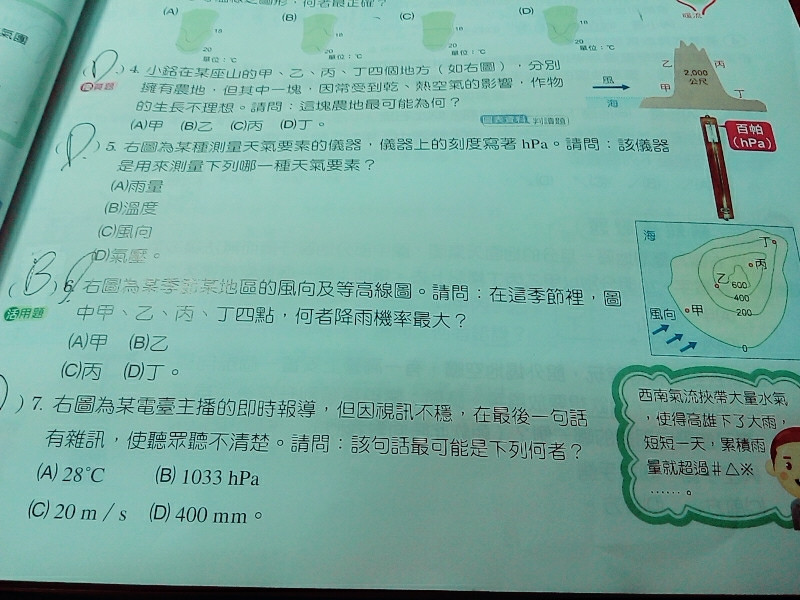 何者最正確？
(A)
(B)
(C)
(D)
18
20
單位：℃
18
20
單位：℃
18
20
單位：℃
18
20
單位：℃
暖流
氣團
(D) 4. 小銘在某座山的甲、乙、丙、丁四個地方（如右圖），分別
擁有農地，但其中一塊，因常受到乾、熱空氣的影響，作物
的生長不理想。請問：這塊農地最可能為何？
(A)甲 (B)乙 (C)丙 (D)丁。
圖表資料 判讀題
風
海
乙
丙
甲
丁
2,000
公尺
(D) 5. 右圖為某種測量天氣要素的儀器，儀器上的刻度寫著 hPa。請問：該儀器
是用來測量下列哪一種天氣要素？
(A)雨量
(B)溫度
(C)風向
(D)氣壓。
百帕
(hPa)
(B) 6. 右圖為某季節某地區的風向及等高線圖。請問：在這季節裡，圖
活用題
中甲、乙、丙、丁四點，何者降雨機率最大？
(A)甲 (B)乙
(C)丙 (D)丁。
海
丁
丙
乙
600
400
200
甲
風向
0
) 7. 右圖為某電臺主播的即時報導，但因視訊不穩，在最後一句話
有雜訊，使聽眾聽不清楚。請問：該句話最可能是下列何者？
(A) 28℃ (B) 1033 hPa
(C) 20 m / s (D) 400 mm。
西南氣流挾帶大量水氣
，使得高雄下了大雨，
短短一天，累積雨
量就超過＃△※
……。